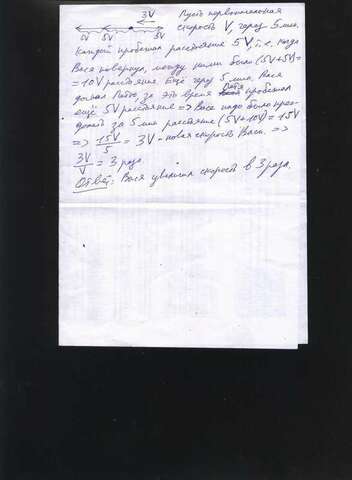 3V
0V 5V 5V
Пусть первоначальная
скорость V, через 5 мин.
Каждый пробежал расстояние 5V, т.е. когда
Вася повернул, между ними было (5V+5V)=
=10V расстояние. Ещё через 5 мин. Вася
догнал Петю, за это время Петя пробежал
ещё 5V расстояние => Васе надо было прео-
долеть за 5 мин расстояние (5V+10V)=15V
=> 15V/5 = 3V - новая скорость Васи. =>
3V/V = 3 раза
Ответ: Вася увеличил скорость в 3 раза.